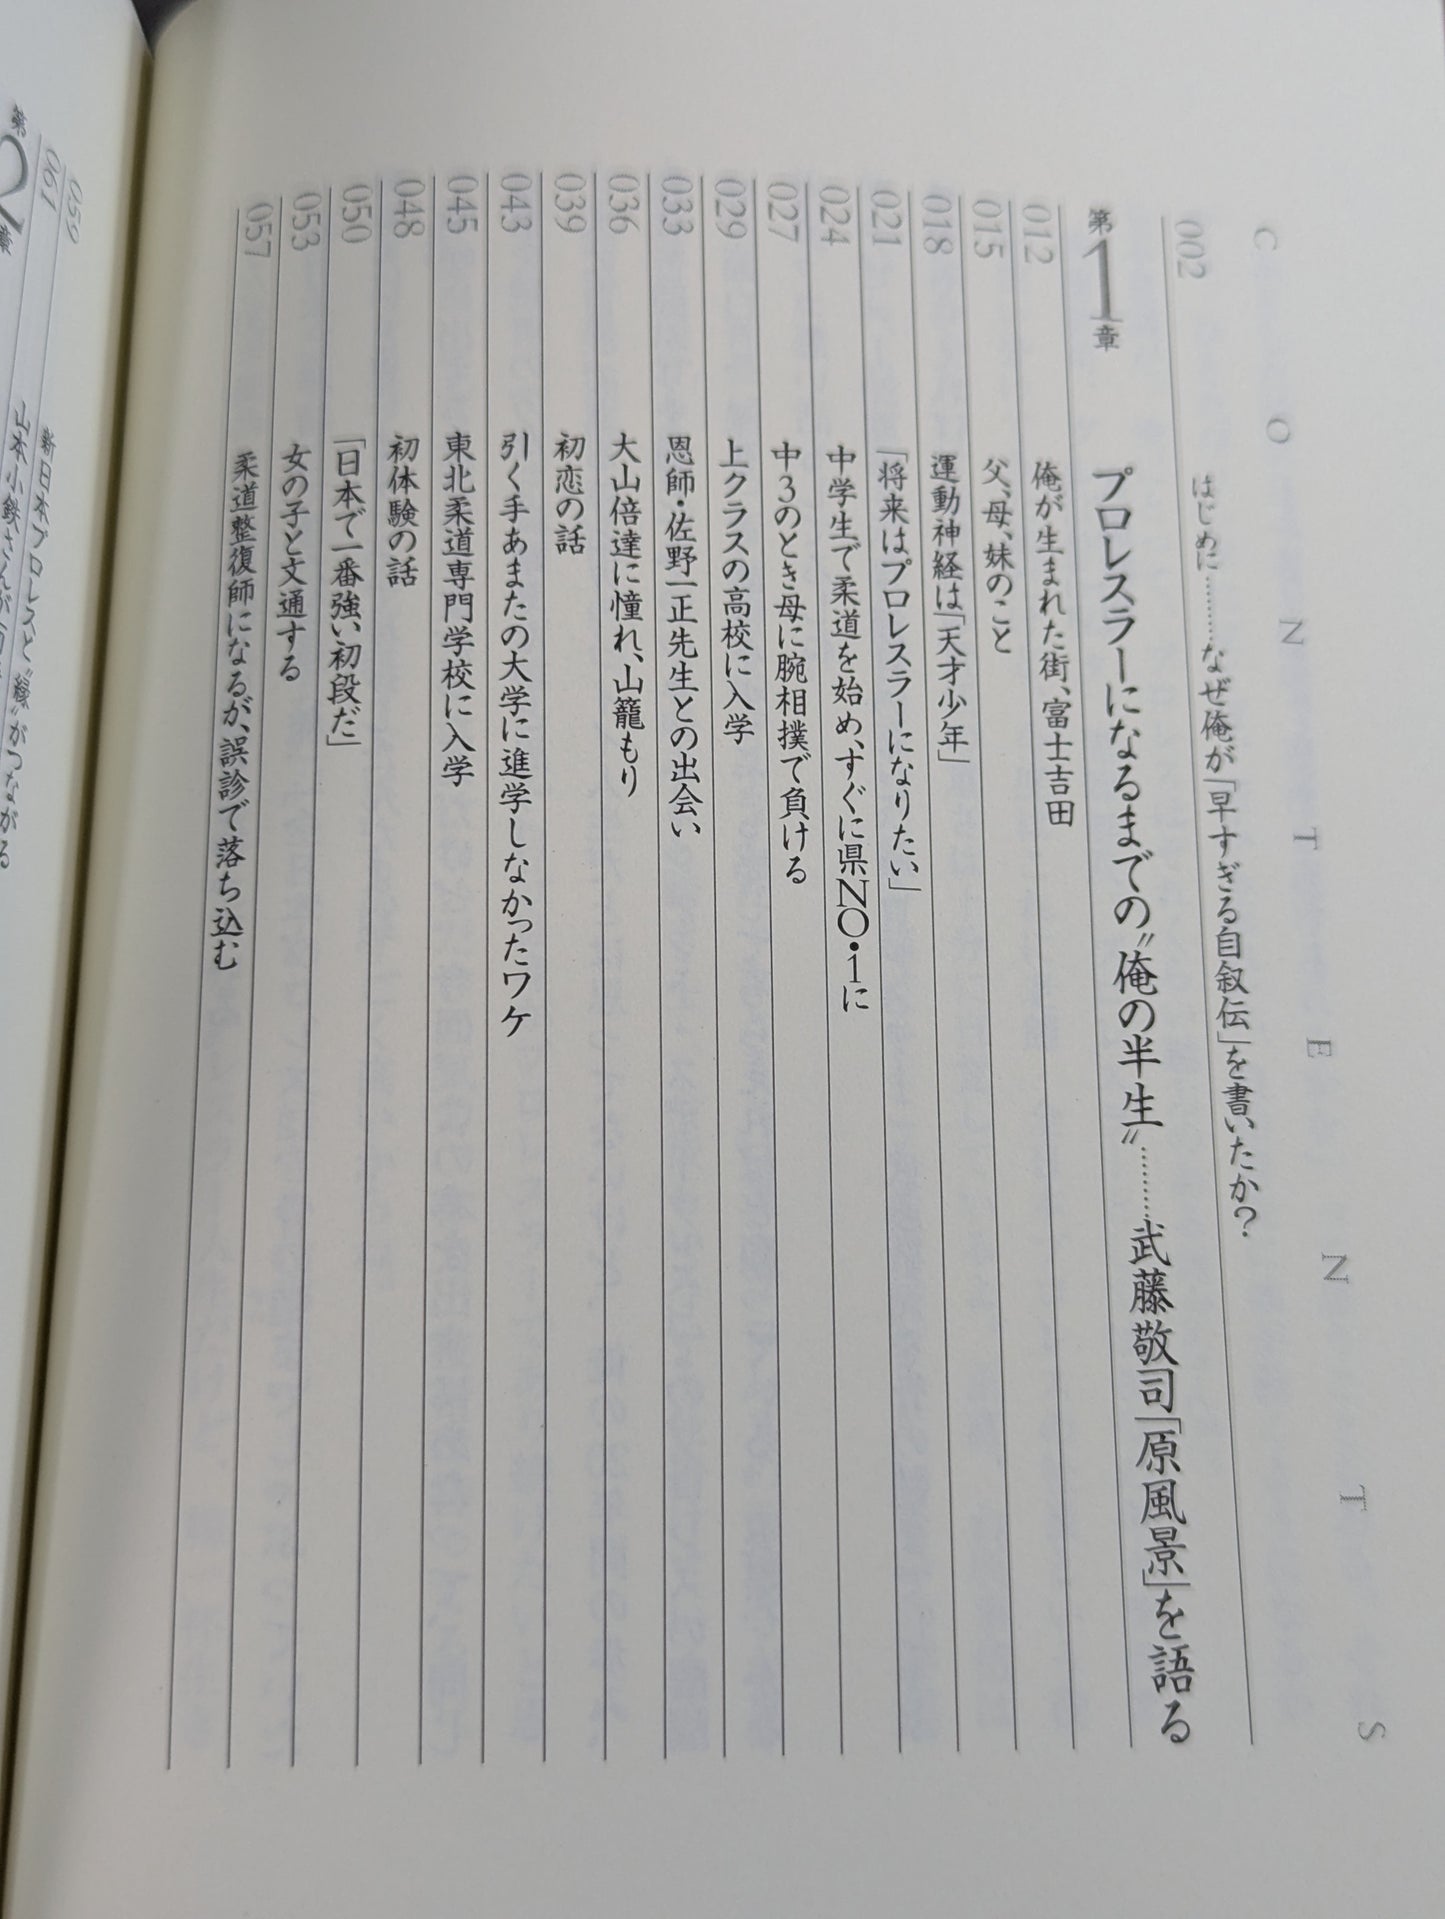 CONTENTS
002 はじめに………なぜ俺が「早すぎる自叙伝」を書いたか？
第1章 プロレスラーになるまでの〝俺の半生〟………武藤敬司「原風景」を語る
012 俺が生まれた街、富士吉田
015 父、母、妹のこと
018 運動神経は「天才少年」
021 「将来はプロレスラーになりたい」
024 中学生で柔道を始め、すぐに県NO・1に
027 中3のとき母に腕相撲で負ける
029 上クラスの高校に入学
033 恩師・佐野一正先生との出会い
036 大山倍達に憧れ、山籠もり
039 初恋の話
043 引く手あまたの大学に進学しなかったワケ
045 東北柔道専門学校に入学
048 初体験の話
050 「日本で一番強い初段だ」
053 女の子と文通する
057 柔道整復師になるが、誤診で落ち込む
059
第2章
061 新日本プロレスと〝縁〟がつながる
山本小鉄さんが